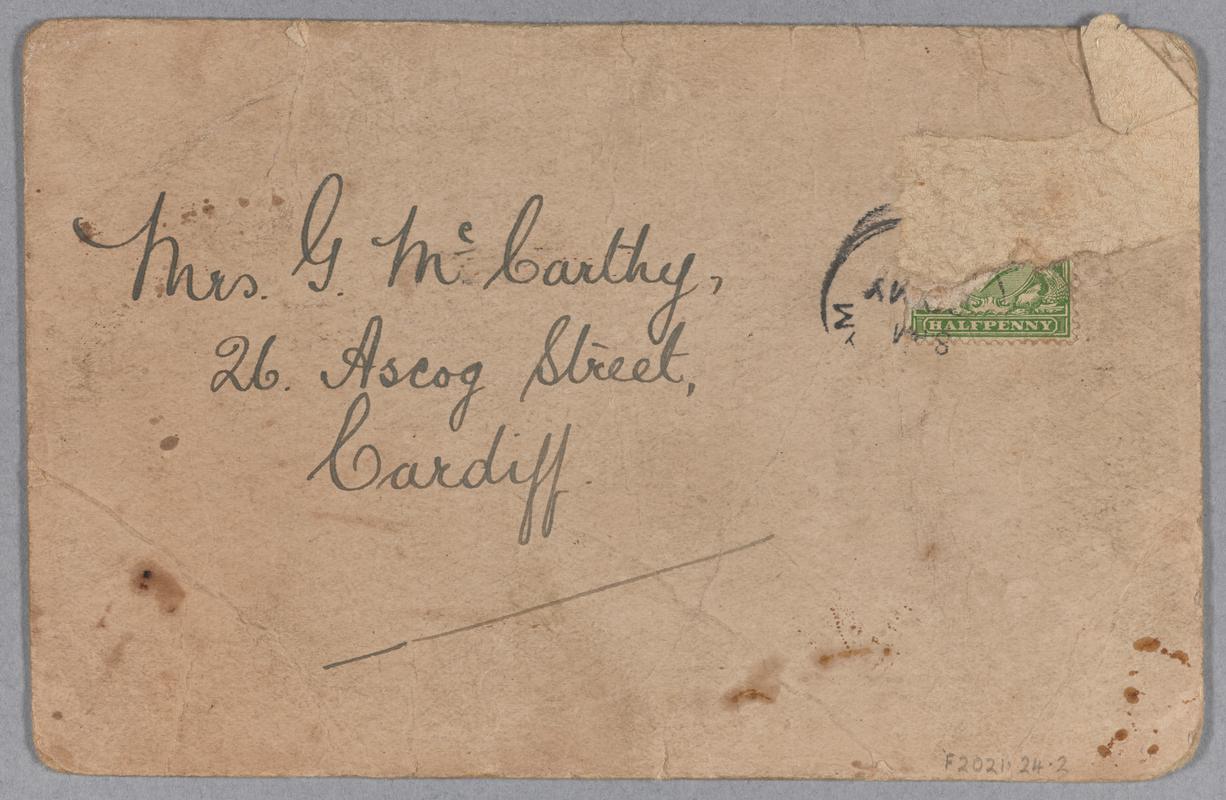 Mrs. G. Mc Carthy,
26. Ascog Street,
Cardiff.
HALFPENNY
F2021.24.2